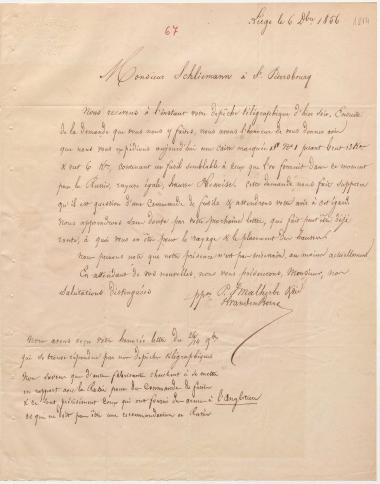 67
Liège le 6 Dbre 1856
Monsieur Schliemann à St. Petersbourg
Nous recevons à l'instant votre dépêche télégraphique d'hier soir. Ensuite
de la demande que vous nous y faites, nous avons l'honneur de vous donner avis
que nous vous expédions aujourd'hui une caisse marquée No 1 pesant brut
& net 6 contenant un fusil semblable à ceux que l'on fournit dans ce moment
pour la Russie, rayure égale, hausse cette demande nous fait supposer
qu'il est question d'une Commande de fusils & attendrons votre avis à cet égard
Nous apprendrons sans doute par votre prochaine lettre, qui fait peut être déjà
route, à quoi vous en êtes pour le rayage & le placement des hausses
que notre présence n'est pas nécessaire, au moins actuellement
En attendant de vos nouvelles, nous vous présentons, Monsieur, nos
Salutations distinguées
P. J. Malherbe
Nous avons reçu votre honorée lettre du
par une dépêche télégraphique
que d'autres fabricants cherchent à se mettre
en rapport avec la Russie pour des Commandes de fusils
& ce sont précisément ceux qui ont fourni des armes à l'Angleterre
ce qui ne doit pas être une recommandation en Russie